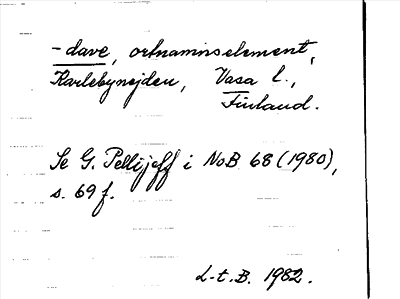 -dave, ortnamnselement,
Karlebynejden, Vasa l.,
Finland.
Se G. Pellijeff i NoB 68 (1980),
s. 69 f.
L-t. B. 1982.